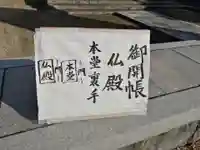 御開帳
仏殿
本堂裏手
本堂
仏殿